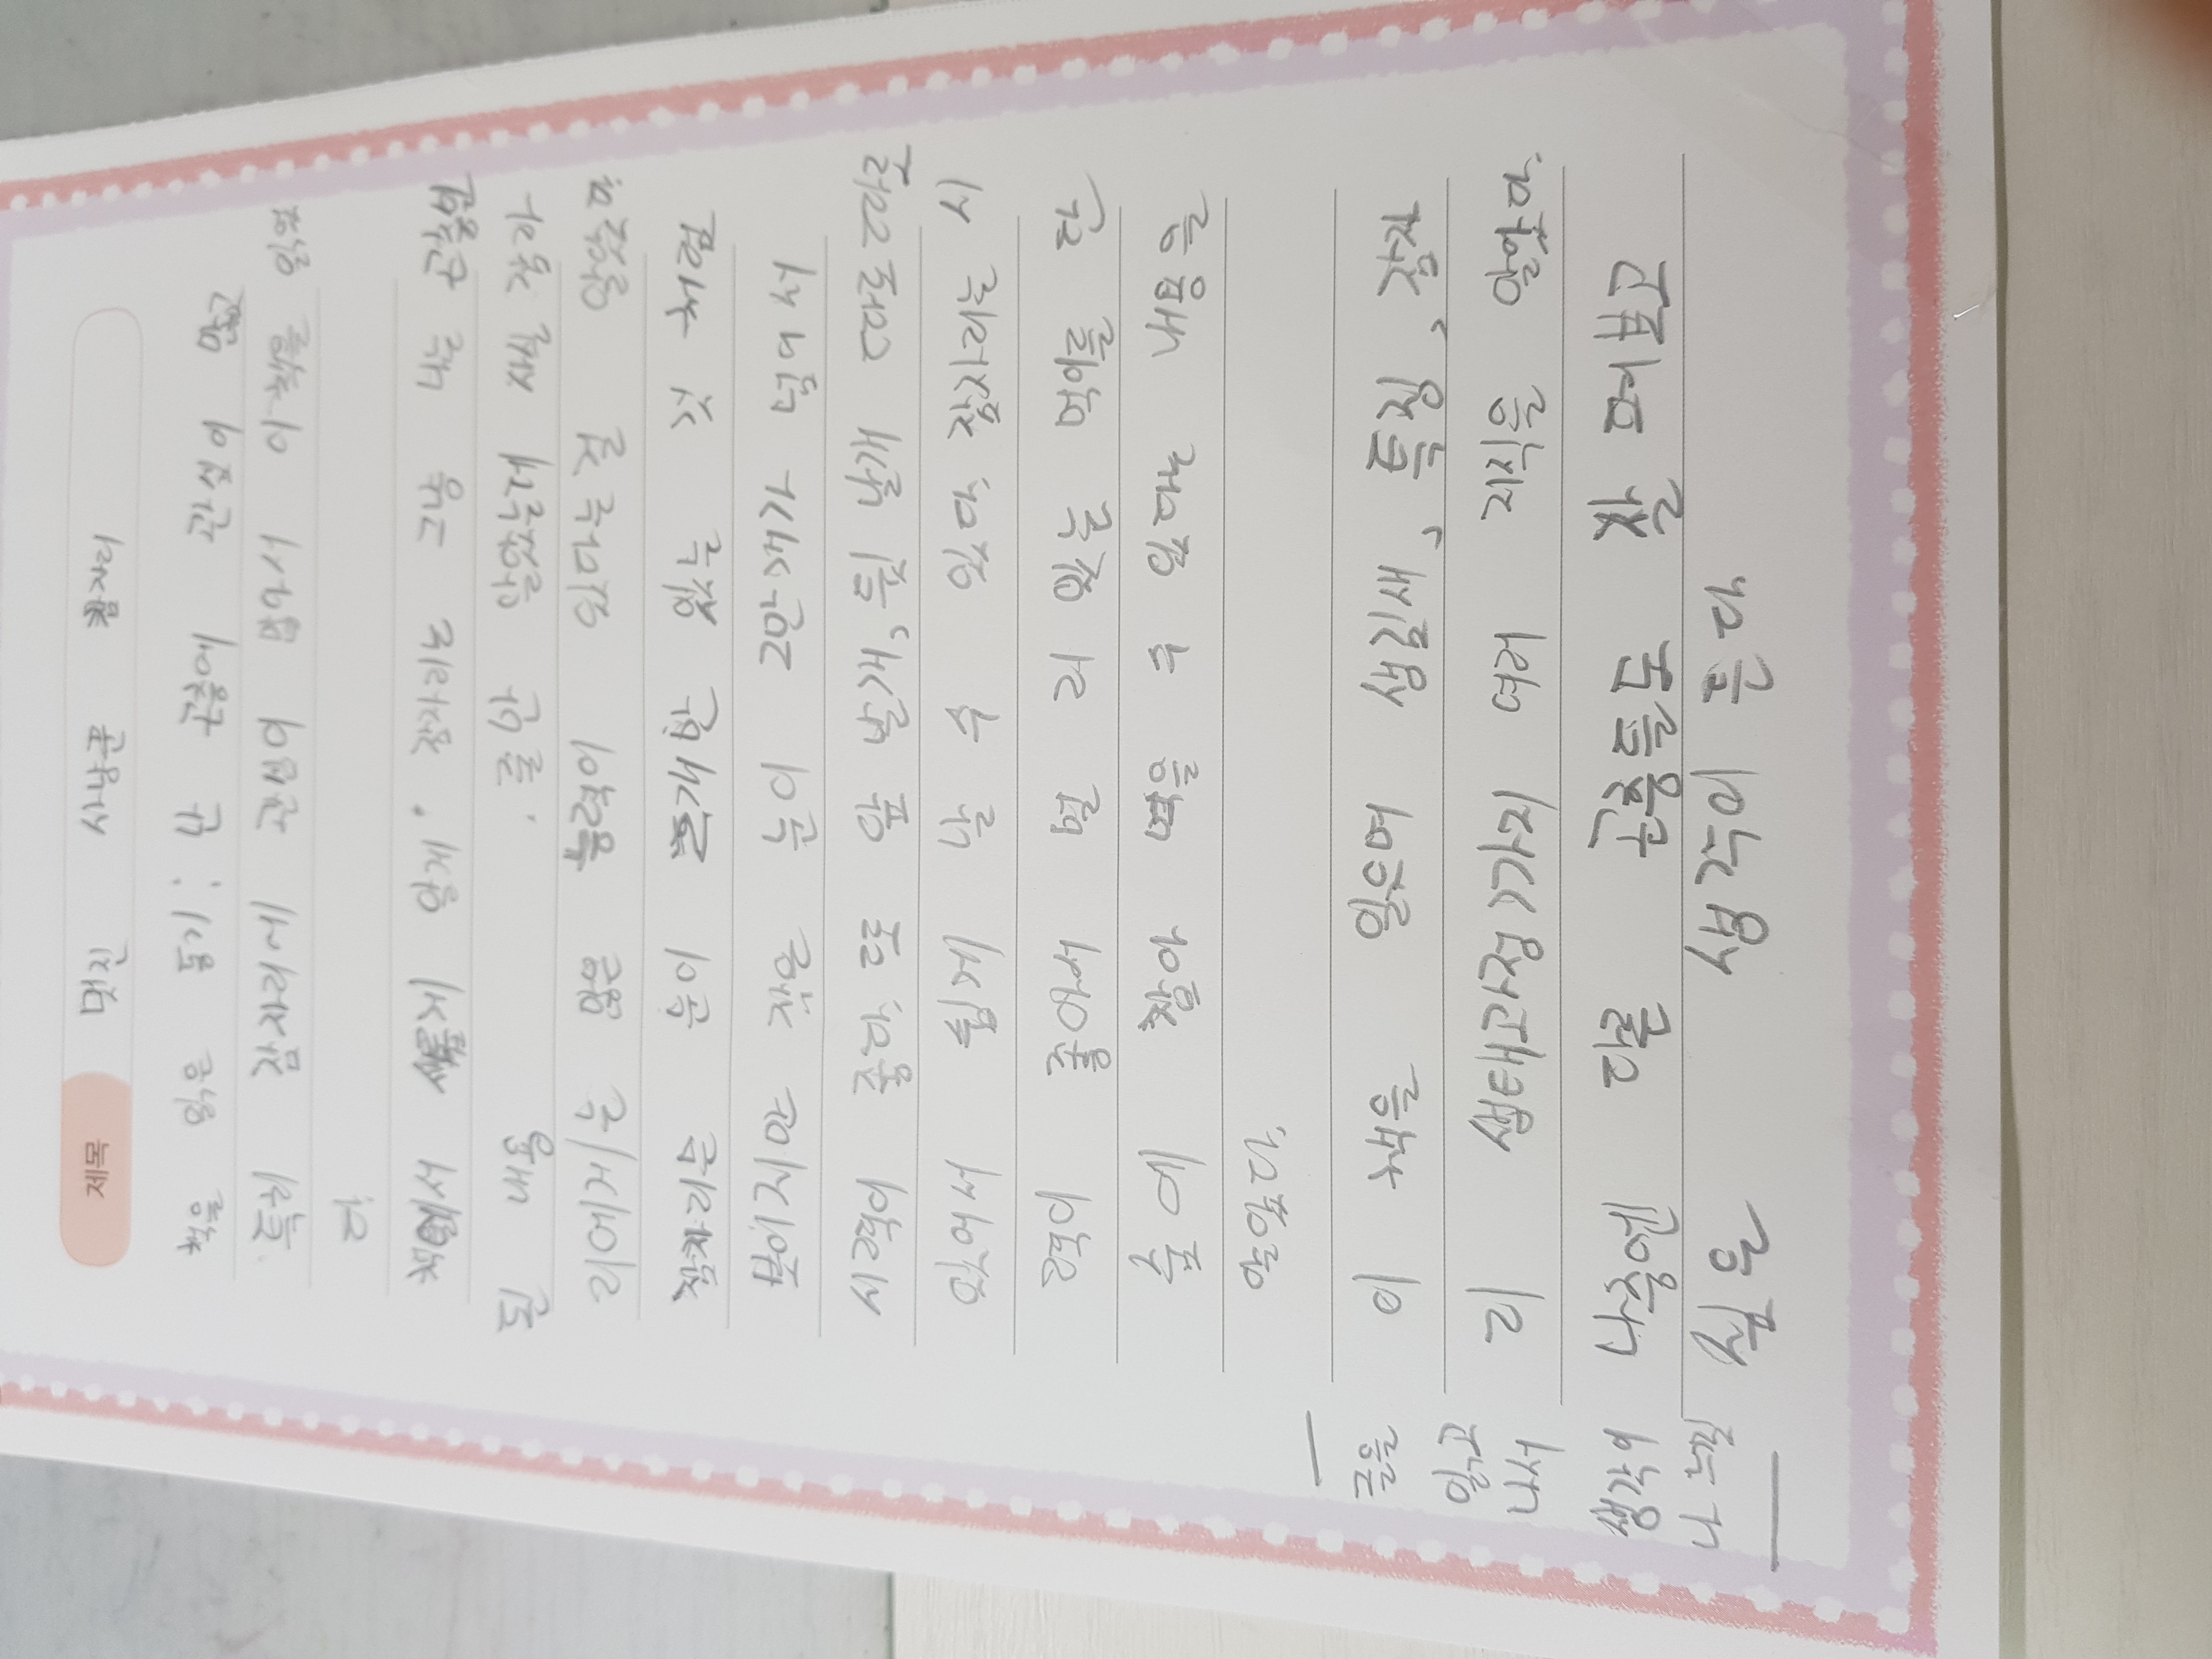 제목 멋진 사냥꾼 잠자리
책을 읽은 동기: 난 곤충에 관심이 많고
특히 잠자리에 관심이 많아서 이 책을 읽었
다.
책에서 새롭게 알게 : 잠자리는 그냥 나는 곤충인
된 내용 줄만 알았는데 사실 잠자
리에게는 많은 능력이 있다는 걸 알았다.
잠자리는 눈이 2개만 있는 것 처럼
보이지만 작은 눈이 2만개가 넘어서
시력이 좋다. 또 앞 날개, 뒷 날개 따로 따로
있어서 쉽게 날 수 있다. 잠자리는 시
력이 좋아서 멀 리 있는 먹이를 단
숨에 잡아 먹을 수 있다는 내용을
알았다.
글을 읽고 나서 생각이나 느낌
이 책을 읽으며 생김새, 특징, 잠자
리 생태과정까지 여러 지식을 알았다.
나중엔 다른 곤충들도 잘 펴보고
싶은 생각이 든다.